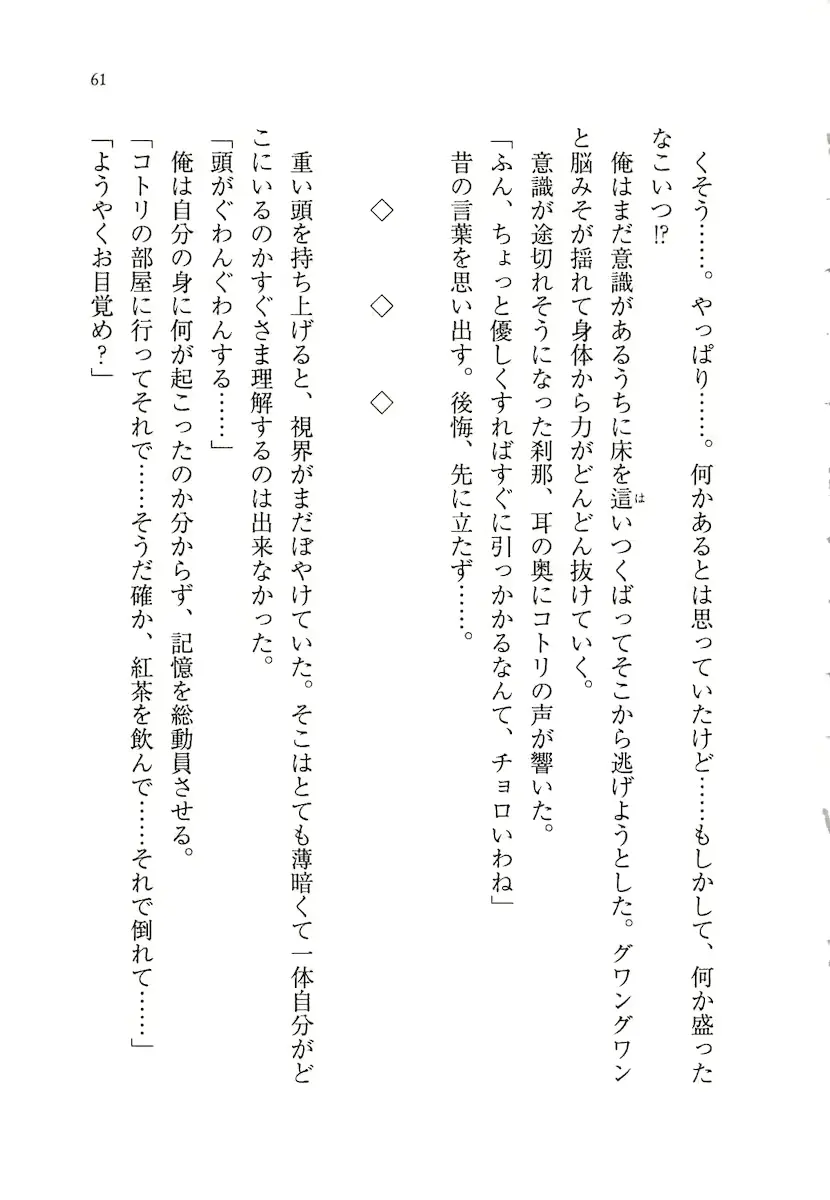 61
くそう……。やっぱり……。何かあるとは思っていたけど……もしかして、何か盛った
なこいつ!?
俺はまだ意識があるうちに床を這いつくばってそこから逃げようとした。グワングワン
は
と脳みそが揺れて身体から力がどんどん抜けていく。
意識が途切れそうになった刹那、耳の奥にコトリの声が響いた。
「ふん、ちょっと優しくすればすぐに引っかかるなんて、チョロいわね」
昔の言葉を思い出す。後悔、先に立たず……。
◇　◇　◇
重い頭を持ち上げると、視界がまだぼやけていた。そこはとても薄暗くて一体自分がど
こにいるのかすぐさま理解するのは出来なかった。
「頭がぐわんぐわんする……」
俺は自分の身に何が起こったのか分からず、記憶を総動員させる。
「コトリの部屋に行ってそれで……そうだ確か、紅茶を飲んで……それで倒れて……」
「ようやくお目覚め？」